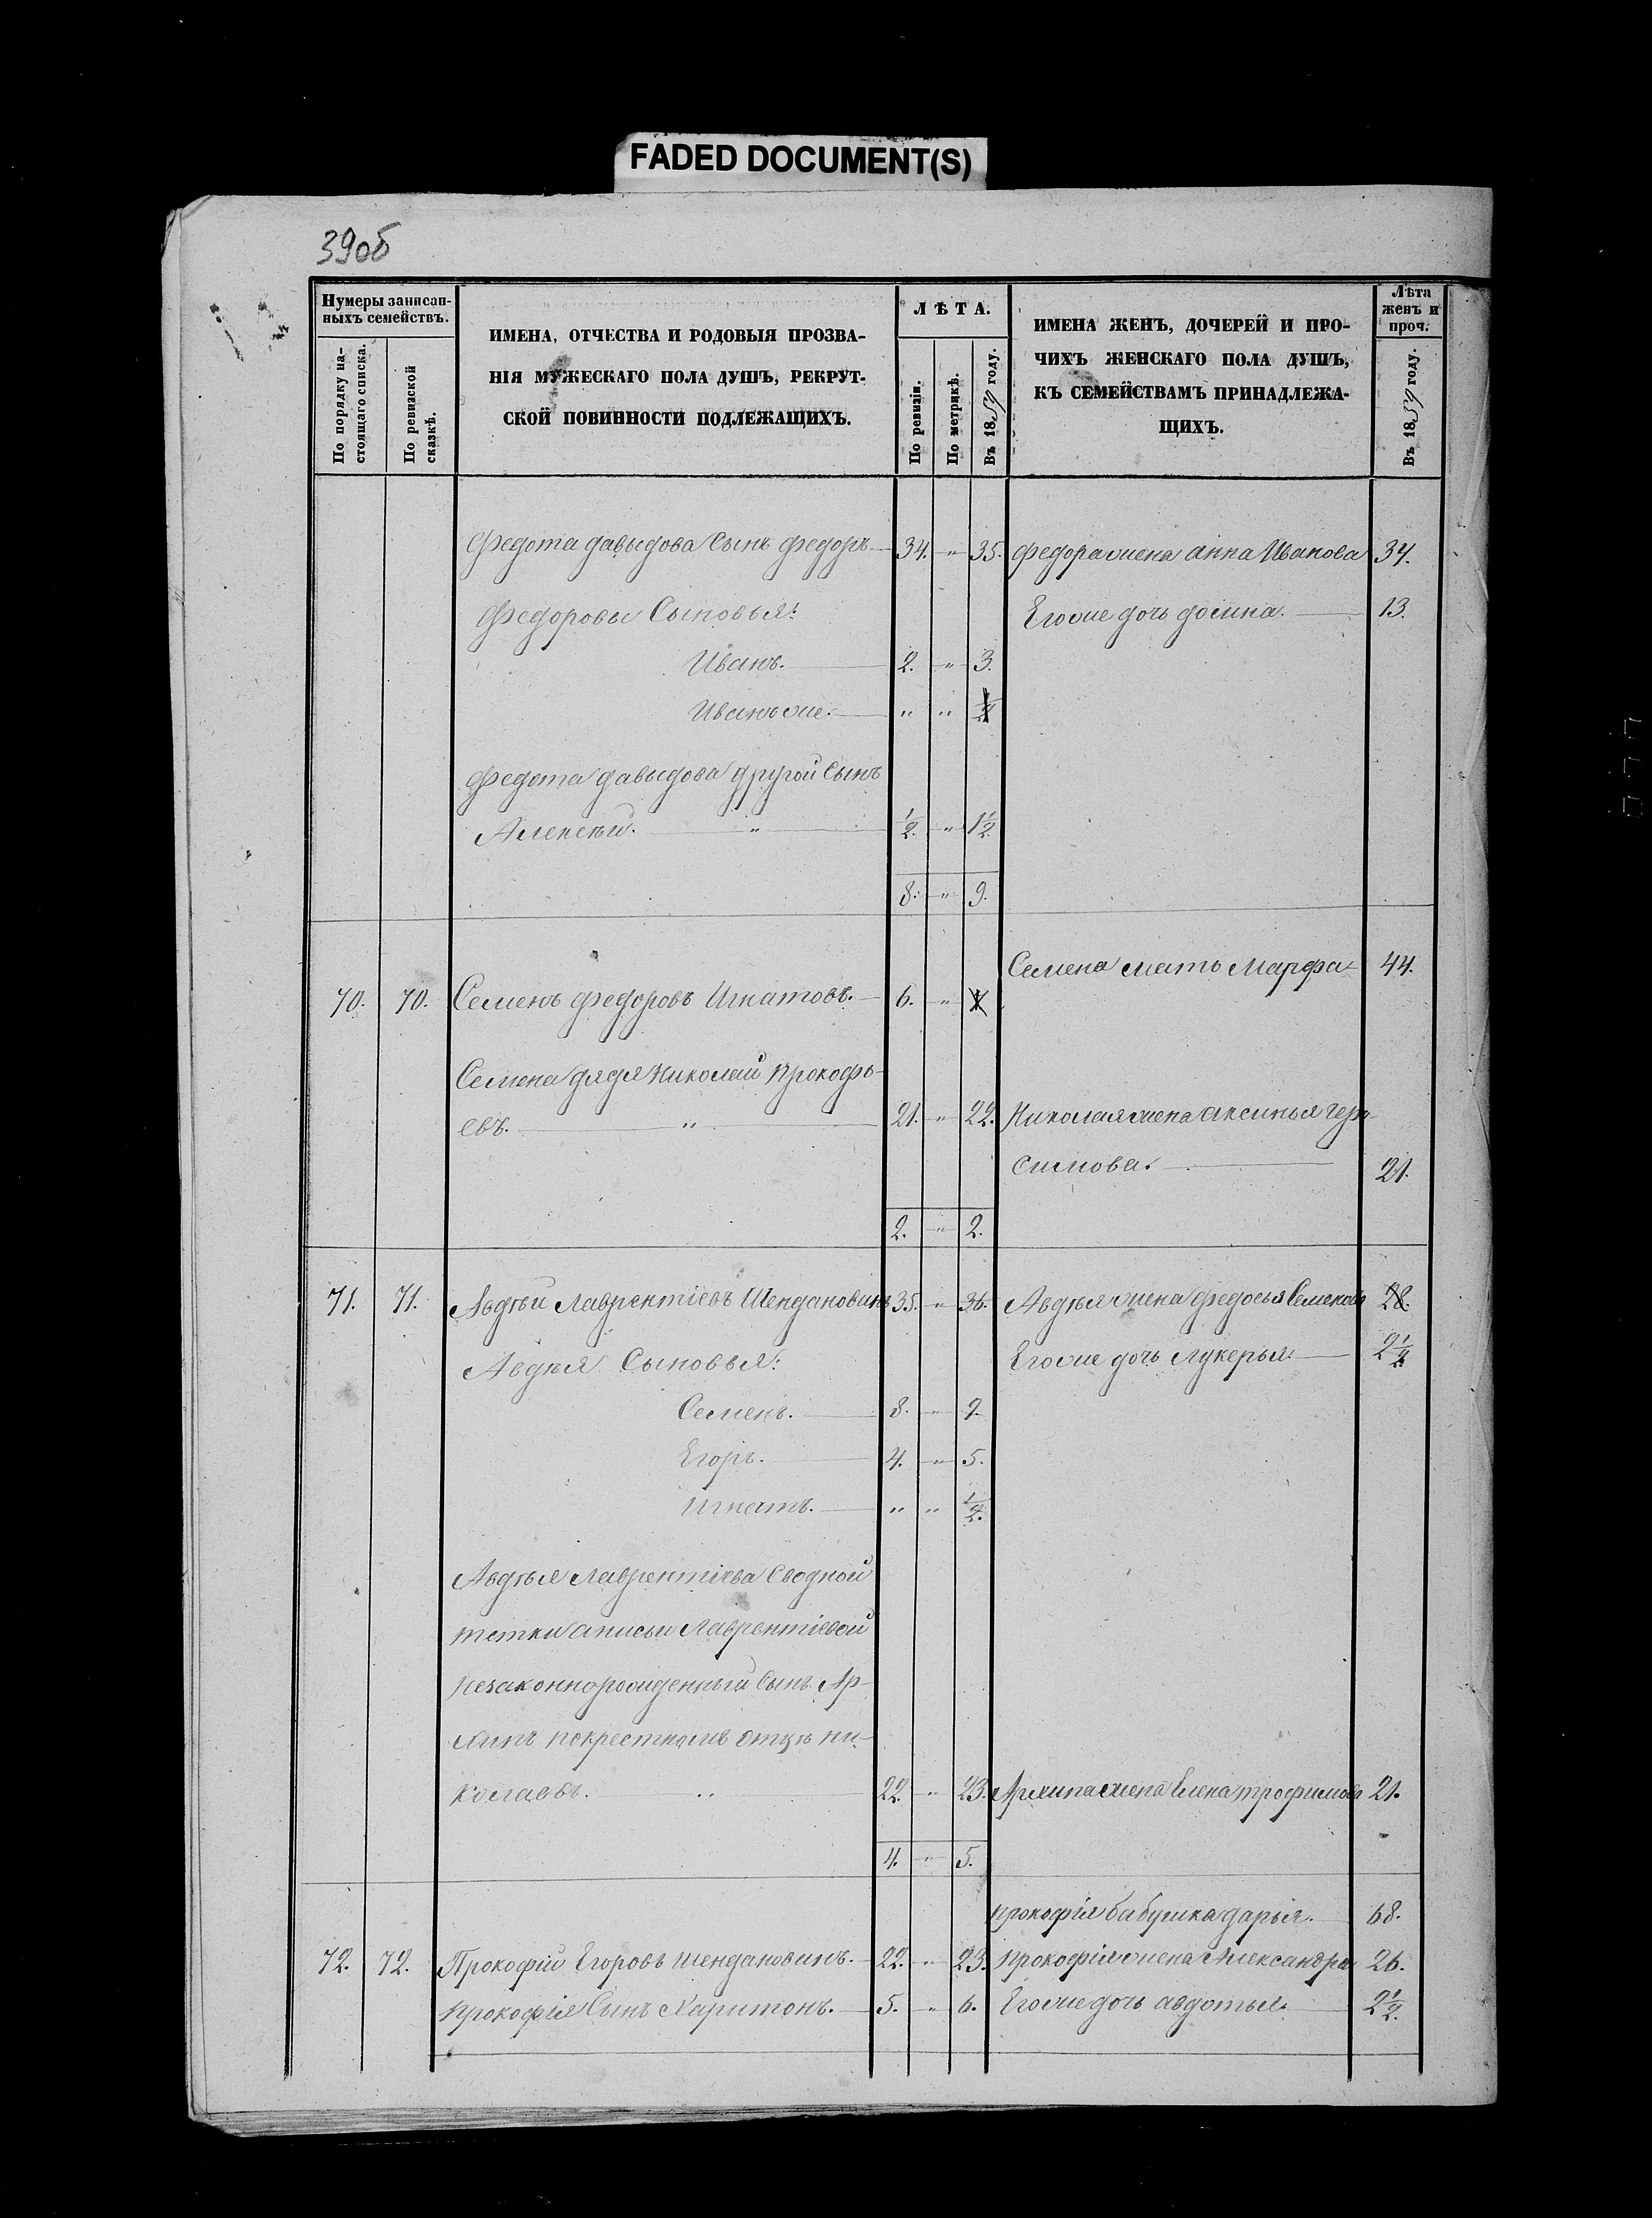 FADED DOCUMENT(S)
39об
Нумеры записан-
ныхъ семействъ.
По порядку на-
стоящаго списка.
По ревизской
сказкѣ.
ИМЕНА, ОТЧЕСТВА И РОДОВЫЯ ПРОЗВА-
НІЯ МУЖЕСКАГО ПОЛА ДУШЪ, РЕКРУТ-
СКОЙ ПОВИННОСТИ ПОДЛЕЖАЩИХЪ.
ЛѢТА.
По ревизіи.
По метрикѣ.
Въ 1859 году.
ИМЕНА ЖЕНЪ, ДОЧЕРЕЙ И ПРО-
ЧИХЪ ЖЕНСКАГО ПОЛА ДУШЪ,
КЪ СЕМЕЙСТВАМЪ ПРИНАДЛЕЖА-
ЩИХЪ.
Лѣта
женъ и
проч.
Въ 1859 году.
Федота давыдова Сынъ федоръ. 34. " 35. федора жена анна Иванова 34.
Федоровы Сыновья: Егоже дочь домна. 13.
Иванъ. 2. " 3.
Иванъ же. " " 1/2
федота давыдова другой Сынъ
Алексѣй. " 1/2. " 1 1/2.
8. " 9.
Семена мать Марфа 44.
70. 70. Семенъ федоровъ Игнатовъ. 6. "
Семена дядя Николай прокофь-
евъ. " 21. " 22. Николая жена аксинья гера-
симова. 21.
2. " 2.
71. 71. Авдѣй Лаврентіевъ Шендановинъ 35. " 36. Авдѣя жена федосья Семенова 28.
Авдѣя Сыновья: Егоже дочь лукерья. 2 1/2
Семенъ. 8. " 9.
Егоръ. 4. " 5.
Игнатъ. " " 1/2.
Авдѣя Лаврентіева Сводной
тетки анисьи Лаврентіевой
незаконнорожденный Сынъ Ар-
хипъ покрестномъ отцѣ ни-
колаевъ. " 22. " 23. Архипа жена Елена трофимова 21.
4. " 5.
прокофія бабушка дарья. 68.
72. 72. Прокофій Егоровъ шендановинъ. 22. " 23. прокофія жена Александра 26.
прокофія Сынъ Харитонъ. 5. " 6. Егоже дочь авдотья. 2 1/2.